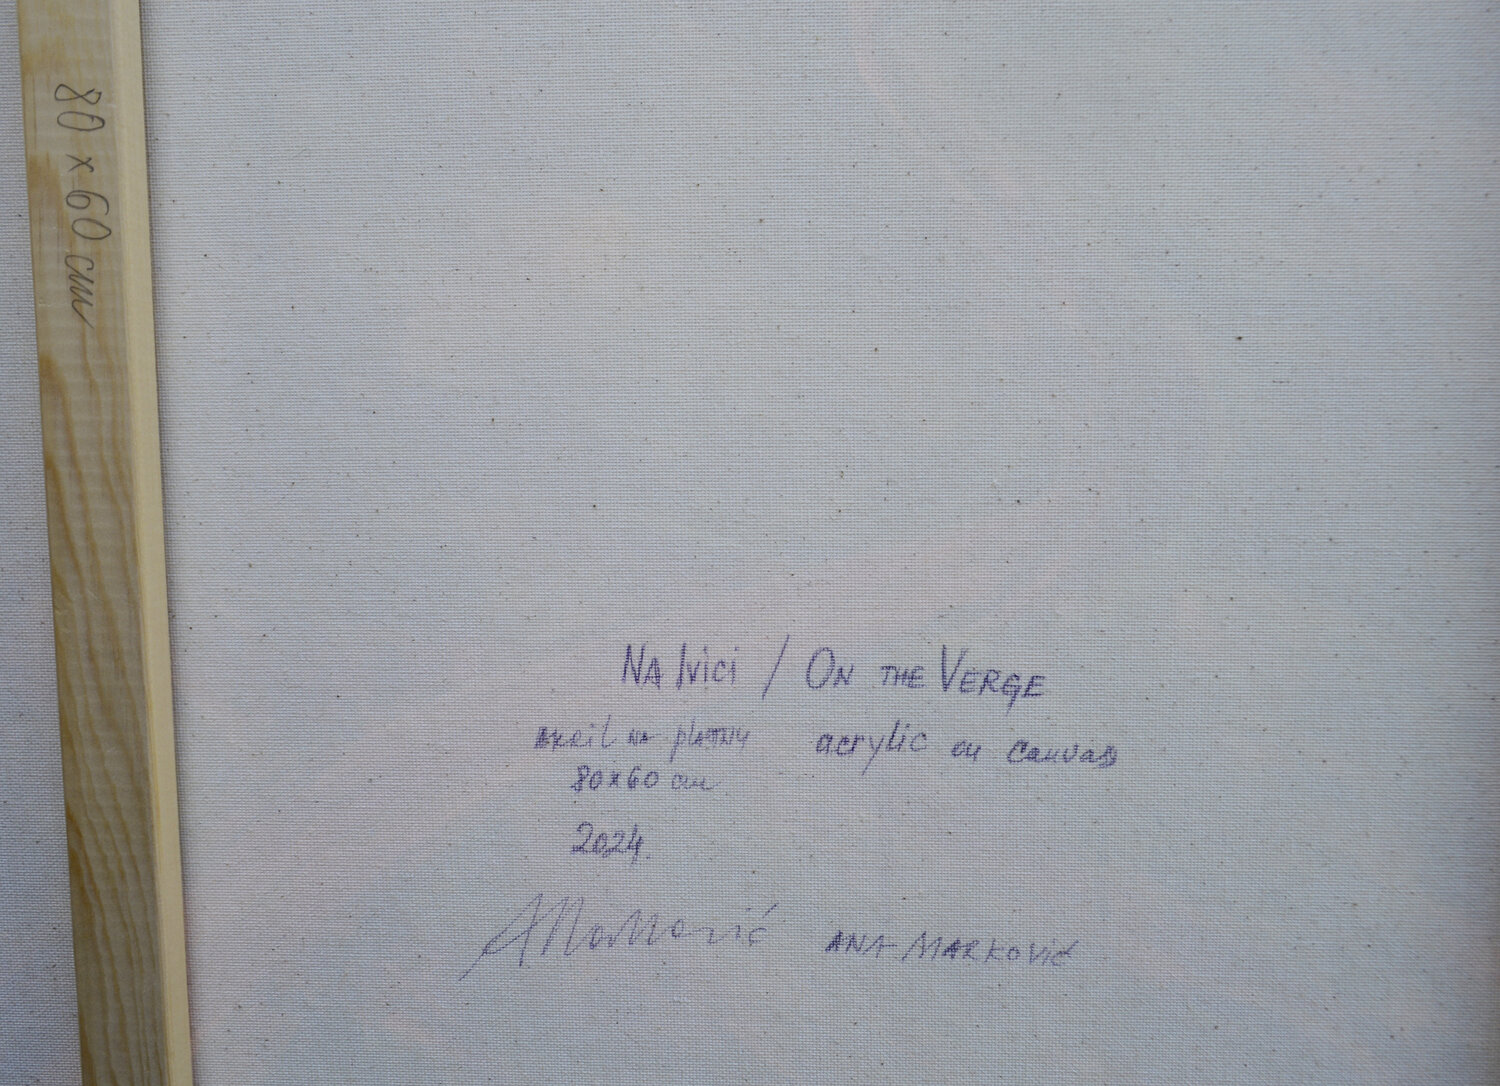 80 x 60 cm
NA IVICI / ON THE VERGE
akril na platnu acrylic on canvas
80x60 cm
2024.
AMarković ANA MARKOVIĆ